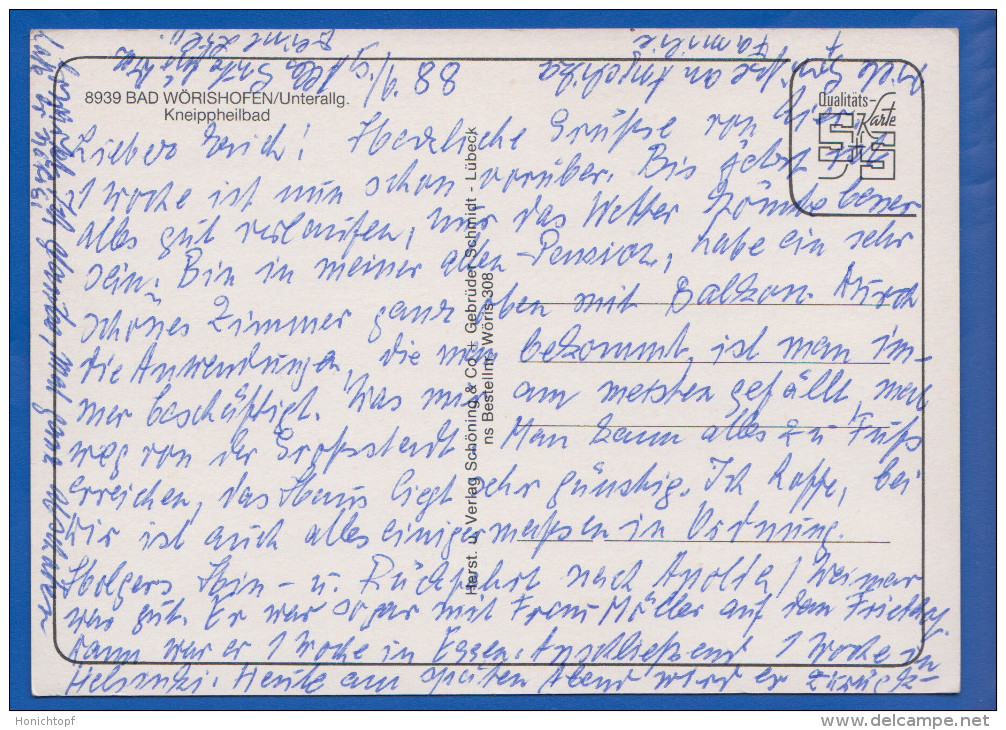 8939 BAD WÖRISHOFEN/Unterallg.
Kneippheilbad
Qualitäts-
Karte
Lieber Erich! Herzliche Grüße von hier.
1 Woche ist nun schon vorüber. Bis jetzt ist
alles gut verlaufen, nur das Wetter könnte besser
sein. Bin in meiner alten Pension, habe ein sehr
schönes Zimmer ganz oben mit Balkon. Durch
die Anwendungen, die man bekommt, ist man im-
mer beschäftigt. Was mir am meisten gefällt, mal
weg von der Großstadt. Man kann alles zu Fuß
erreichen, das Haus liegt sehr günstig. Ich hoffe, bei
Dir ist auch alles einigermaßen in Ordnung.
Holgers Hin- u. Rückfahrt nach Apolda / Weimar
war gut. Er war sogar mit Frau Möller auf dem Friedhof.
Dann war er 1 Woche in Essen. Anschließend 1 Woche in
Helsinki. Heute am späten Abend wird er zurück-
Herst. u. Verlag Schöning & Co. + Gebrüder Schmidt - Lübeck
ns Bestellnr. Wöris 308
88
Familie
Honichtopf
www.delcampe.net